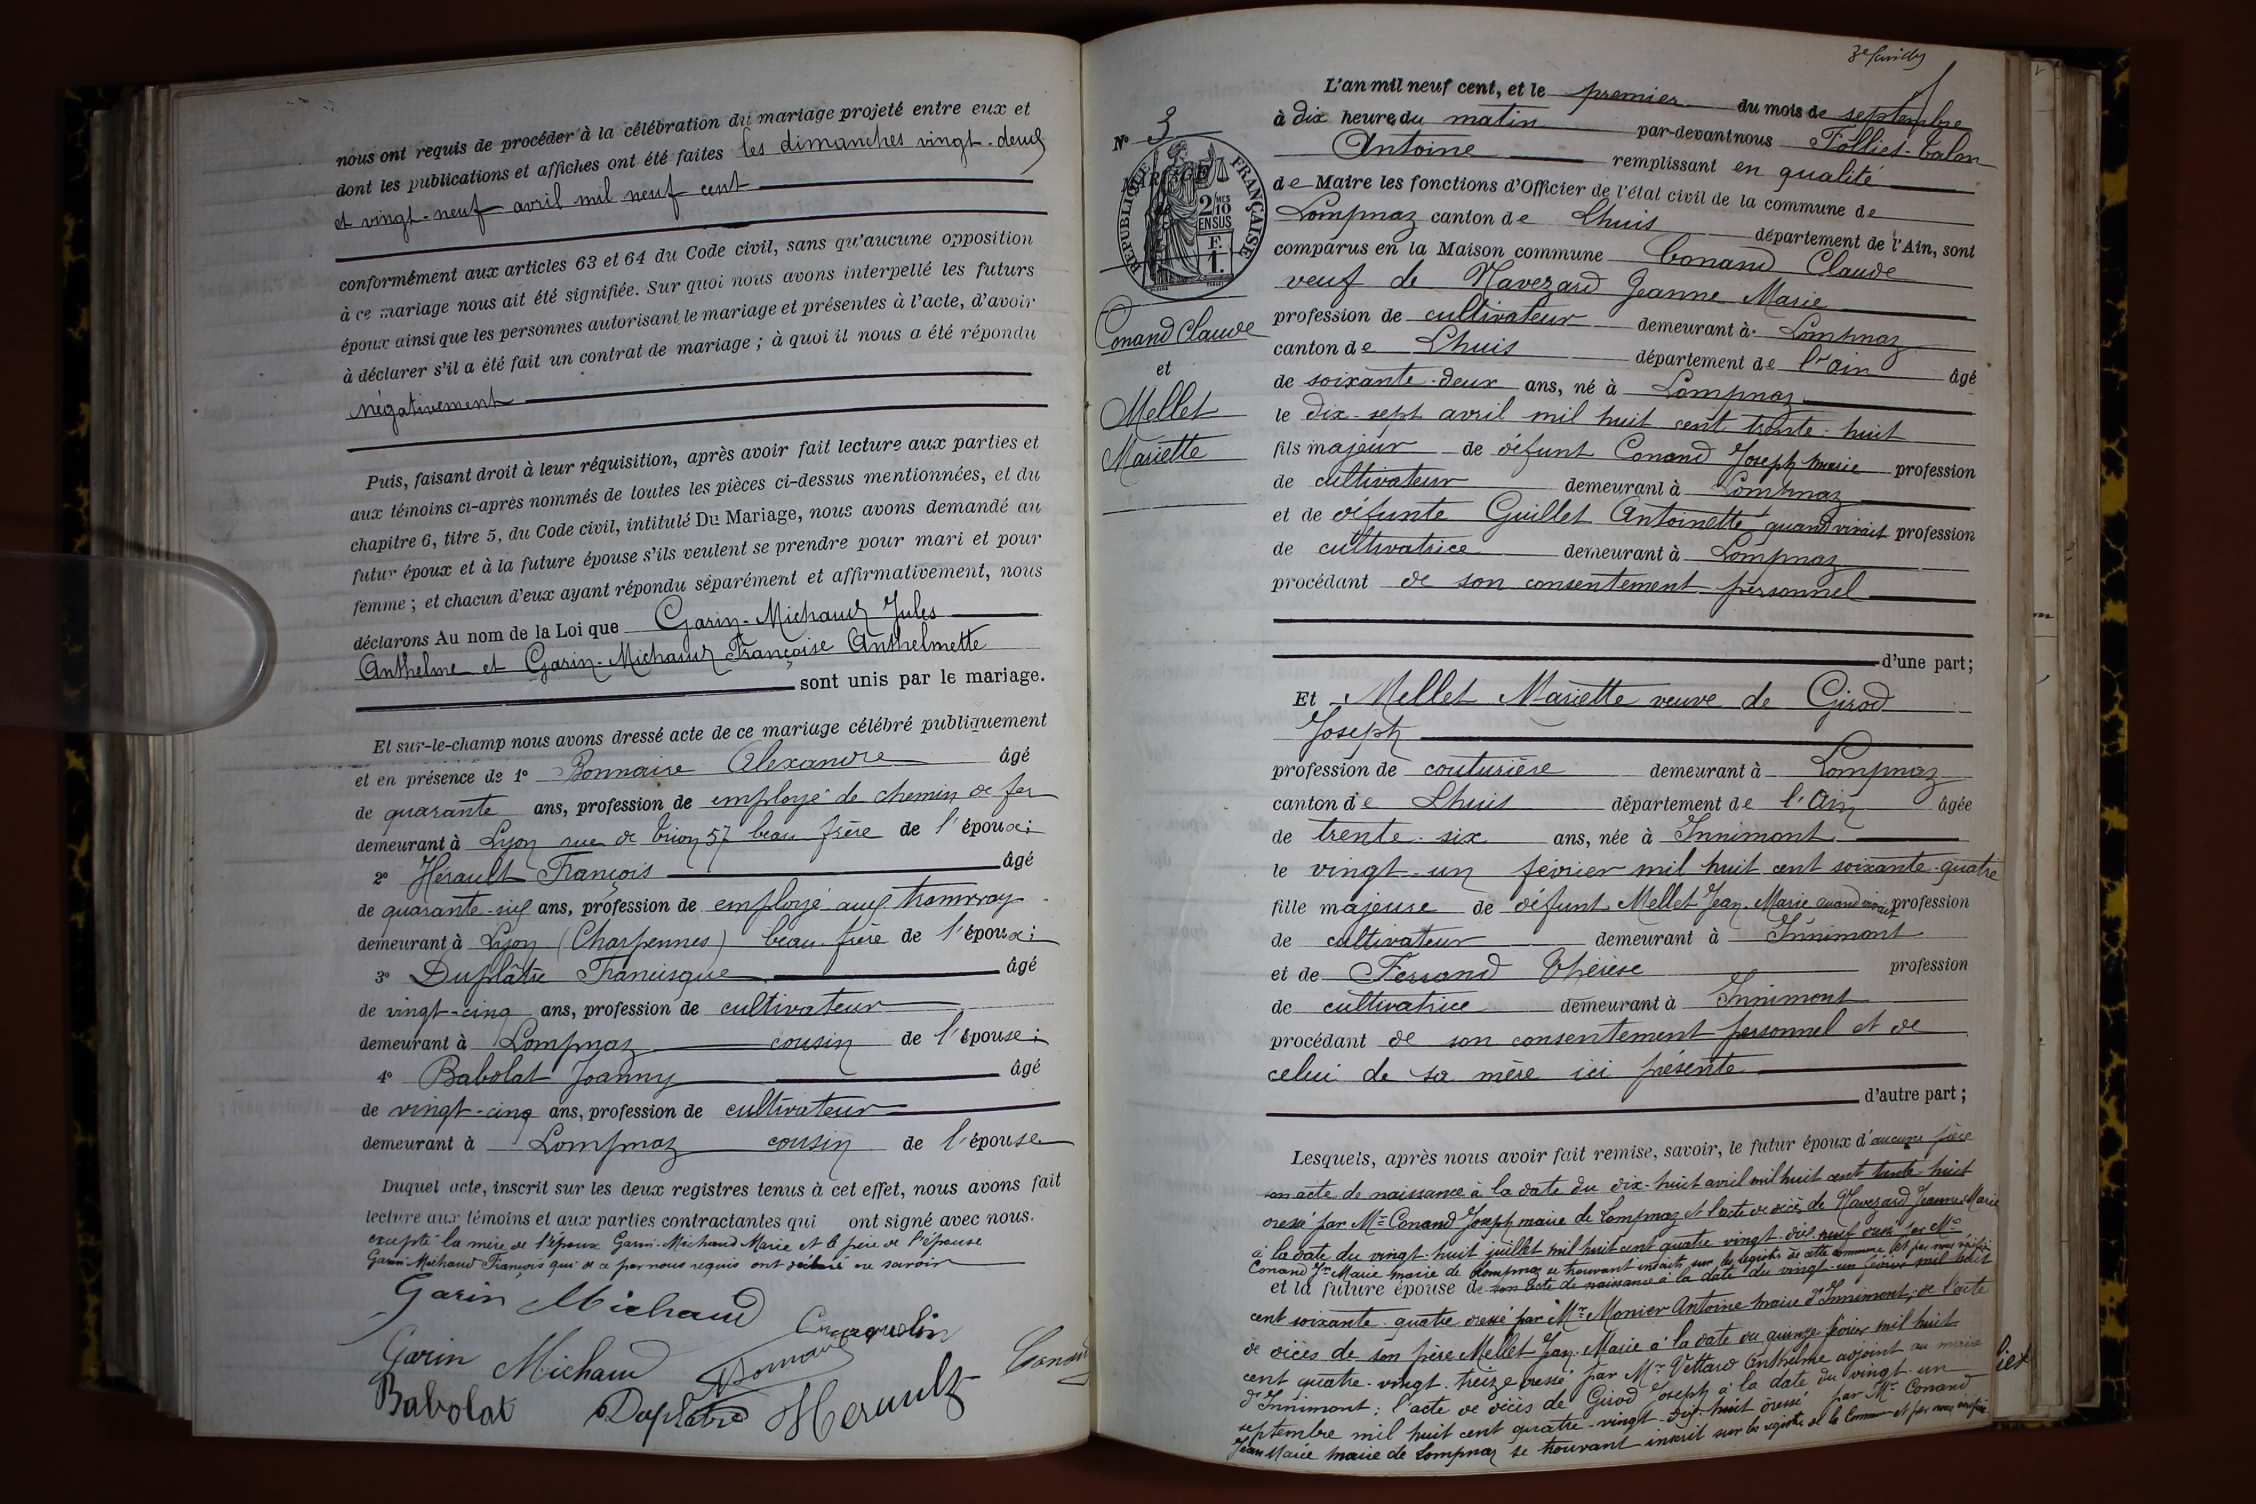 nous ont requis de procéder à la célébration du mariage projeté entre eux et
dont les publications et affiches ont été faites les dimanches vingt-deux
et vingt-neuf avril mil neuf cent
conformément aux articles 63 et 64 du Code civil, sans qu'aucune opposition
à ce mariage nous ait été signifiée. Sur quoi nous avons interpellé les futurs
époux ainsi que les personnes autorisant le mariage et présentes à l'acte, d'avoir
à déclarer s'il a été fait un contrat de mariage ; à quoi il nous a été répondu
négativement
Puis, faisant droit à leur réquisition, après avoir fait lecture aux parties et
aux témoins ci-après nommés de toutes les pièces ci-dessus mentionnées, et du
chapitre 6, titre 5, du Code civil, intitulé Du Mariage, nous avons demandé au
futur époux et à la future épouse s'ils veulent se prendre pour mari et pour
femme ; et chacun d'eux ayant répondu séparément et affirmativement, nous
déclarons Au nom de la Loi que Garin-Michaud Jules
Anthelme et Garin-Michaud Françoise Anthelmette
sont unis par le mariage.
Et sur-le-champ nous avons dressé acte de ce mariage célébré publiquement
et en présence de 1° Bonnaire Alexandre âgé
de quarante ans, profession de employé de chemin de fer
demeurant à Lyon rue de Trion 57 beau frère de l'époux ;
2° Hérault François âgé
de quarante-six ans, profession de employé aux tramway
demeurant à Lyon (Charpennes) beau-frère de l'époux ;
3° Duplâtre Francisque âgé
de vingt-cinq ans, profession de cultivateur
demeurant à Lompnaz cousin de l'épouse ;
4° Babolat Joanny âgé
de vingt-cinq ans, profession de cultivateur
demeurant à Lompnaz cousin de l'épouse
Duquel acte, inscrit sur les deux registres tenus à cet effet, nous avons fait
lecture aux témoins et aux parties contractantes qui ont signé avec nous.
excepté la mère de l'époux Garin-Michaud Marie et le père de l'épouse
Garin-Michaud François qui de ce par nous requis ont déclaré ne savoir
Garin Michaud
Garin Michaud
Babolat Duplatre Herault
3e feuillet
L'an mil neuf cent, et le premier du mois de septembre
à dix heures du matin par-devant nous Folliet-balm
Antoine remplissant en qualité
de Maire les fonctions d'Officier de l'état civil de la commune de
Lompnaz canton de Lhuis département de l'Ain, sont
comparus en la Maison commune Conand Claude
veuf de Navezard Jeanne Marie
profession de cultivateur demeurant à Lompnaz
canton de Lhuis département de l'ain âgé
de soixante-deux ans, né à Lompnaz
le dix-sept avril mil huit cent trente-huit
fils majeur de défunt Conand Joseph marie profession
de cultivateur demeurant à Lompnaz
et de défunte Guillet Antoinette quand vivait profession
de cultivatrice demeurant à Lompnaz
procédant de son consentement personnel
d'une part ;
N° 3
MARIAGE
RÉPUBLIQUE FRANÇAISE
2/10 EN SUS
F. 1.
Conand Claude
et
Mellet
Mariette
Et Mellet Mariette veuve de Girod
Joseph
profession de couturière demeurant à Lompnaz
canton de Lhuis département de l'Ain âgée
de trente-six ans, née à Innimont
le vingt-un février mil huit cent soixante-quatre
fille majeure de défunt Mellet Jean-Marie quand vivait profession
de cultivateur demeurant à Innimont
et de Ferrand Thérèse profession
de cultivatrice demeurant à Innimont
procédant de son consentement personnel et de
celui de sa mère ici présente
d'autre part ;
Lesquels, après nous avoir fait remise, savoir, le futur époux d'aucune pièce
son acte de naissance à la date du dix-huit avril mil huit cent trente-huit
dressé par Mr Conand Joseph maire de Lompnaz et l'acte de décès de Navezard Jeanne-Marie
à la date du vingt-huit juillet mil huit cent quatre vingt-dix-neuf dressé par Mr
Conand Jn Marie maire de Lompnaz se trouvant inscrits sur les registres de cette commune et par nous vérifiés
et la future épouse de son acte de naissance à la date du vingt-un février mil huit
cent soixante-quatre dressé par Mr Monier Antoine maire d'Innimont ; de l'acte
de décès de son père Mellet Jean-Marie à la date du quinze février mil huit
cent quatre-vingt-treize dressé par Mr Vettard Anthelme adjoint au maire
d'Innimont ; l'acte de décès de Girod Joseph à la date du vingt-un
septembre mil huit cent quatre-vingt-dix-huit dressé par Mr Conand
Jean Marie maire de Lompnaz se trouvant inscrit sur les registres de la Commune et par nous vérifié